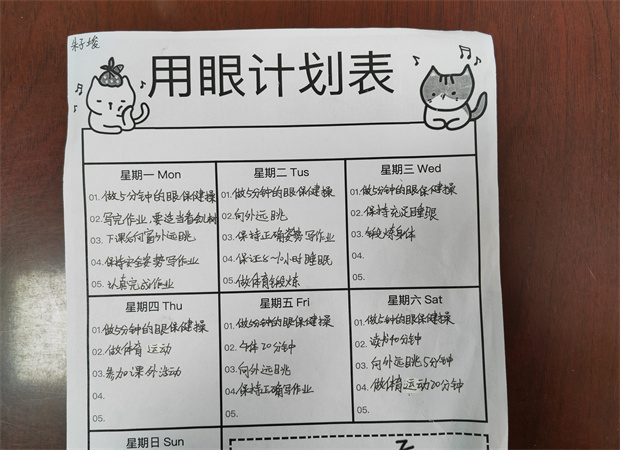 用眼计划表
星期一 Mon
01. 做5分钟的眼保健操
02. 写完作业,要适当看绿树
03. 下课后向窗外远眺
04. 保持安全姿势写作业
05. 认真完成作业
星期二 Tus
01. 做5分钟的眼保健操
02. 向外远眺
03. 保持正确姿势写作业
04. 保证8~10小时睡眠
05. 做体育锻炼
星期三 Wed
01. 做5分钟的眼保健操
02. 保持充足睡眠
03. 锻炼身体
04.
05.
星期四 Thu
01. 做5分钟的眼保健操
02. 做体育运动
03. 参加课外活动
04.
05.
星期五 Fri
01. 做5分钟的眼保健操
02. 午休20分钟
03. 向外远眺
04. 保持正确写作业
05.
星期六 Sat
01. 做5分钟的眼保健操
02. 读书10分钟
03. 向外远眺5分钟
04. 做体育运动20分钟
05.
星期日 Sun